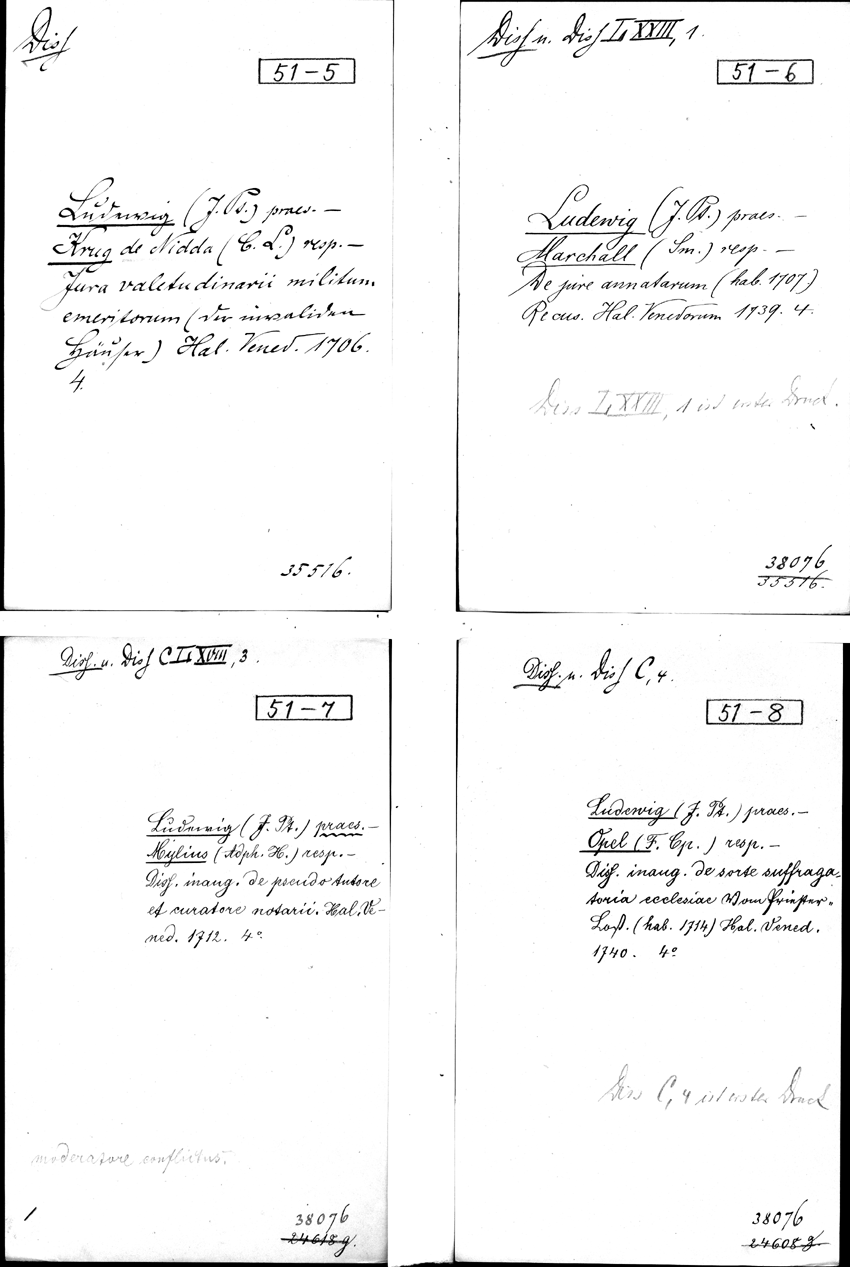 Diss
51-5
Ludewig (J. Pt.) praes. —
Krug de Nidda (C. L.) resp. —
Jura valetudinarii militum
emeritorum (der invaliden
Häuser) Hal. Vened. 1706.
4.
35516.
Diss u. Diss I, XXIII, 1.
51-6
Ludewig (J. Pt.) praes. —
Marchall (Sm.) resp. —
De jure annatarum (hab. 1707)
Recus. Hal. Venedorum 1739. 4.
Diss I, XXIII, 1 ist erster Druck.
38076
35516.
Diss. u. Diss C I, XVIII, 3.
51-7
Ludewig (J. Pt.) praes. —
Mylius (Adph. H.) resp. —
Diss. inaug. de pseudo tutore
et curatore notarii. Hal. Ve-
ned. 1712. 4°
moderatore conflictus.
38076
24618g.
Diss. u. Diss C, 4.
51-8
Ludewig (J. Pt.) praes. —
Opel (F. Cp.) resp. —
Diss. inaug. de sorte suffraga-
toria ecclesiae Vom Priester-
Loss. (hab. 1714) Hal. Vened.
1740. 4°
Diss C, 4 ist erster Druck
38076
24608g.